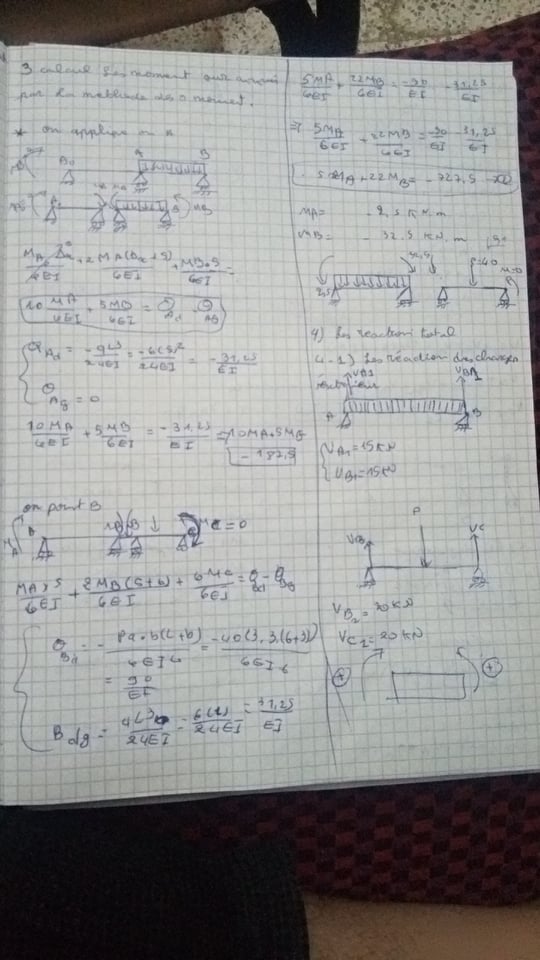 3 calcul les moment
par la methode des 3 moment.
* on applique en A
A B
MA/6EI + 2MA(0+5)/6EI + MB.5/6EI =
10 MA/6EI + 5MB/6EI = θAd - θAg
θAd = -qL³/24EI = -6(5)³/24EI = -31,25/EI
θAg = 0
10MA/6EI + 5MB/6EI = -31,25/EI ⇒ 10MA+5MB
= -187,5
on point B
MA B MB B MC = 0
MA×5/6EI + 2MB(5+6)/6EI + 6MC/6EI = θBd - θBg
θBd = - Pa.b(L+b)/6EI L = -40(3.3(6+3))/6EI 6
= 90/EI
Bdg = qL³/24EI = 6(5)³/24EI = 31,25/EI
5MA/6EI + 22MB/6EI = -90/EI - 31,25/EI
⇒ 5MA/6EI + 22MB/6EI = -90/EI - 31,25/EI
5MA + 22MB = -727,5
MA = -2,5 KN.m
MB = -32,5 KN.m
2,5 32,5 P=40 M=0
4) Les reaction total
4-1) Les réaction des charges
VA1 VB1
A B
VA1 = 15KN
VB1 = 15KN
P
VB VC
VB2 = 20KN
VC2 = 20KN
+ +